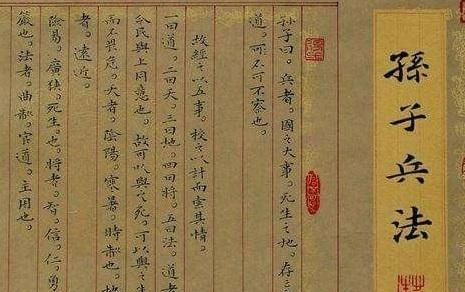 孫子兵法
孫子曰。兵者。國之大事。死生之地。存
道。不可不察也。
故經之以五事。校之以計而索其情。
一曰道。二曰天。三曰地。四曰將。五曰法。道者
令民與上同意也。故可以與之死。可以與之生
而不畏危。天者。陰陽。寒暑。時制也。地
者。遠近。
險易。廣狹。死生。也。將者。智。信。仁。勇
嚴也。法者。曲制。官道。主用也。